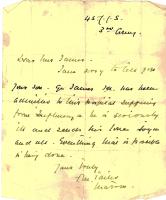 45 C.C.S.
3rd Army.
Dear Mrs James -
I am sorry to tell you
your son - Ge James has been
admitted to this Hospital suffering
from he is seriously
ill and sends his love to you
and all. Everything that is possible
is being done -
Yours truly
Matron